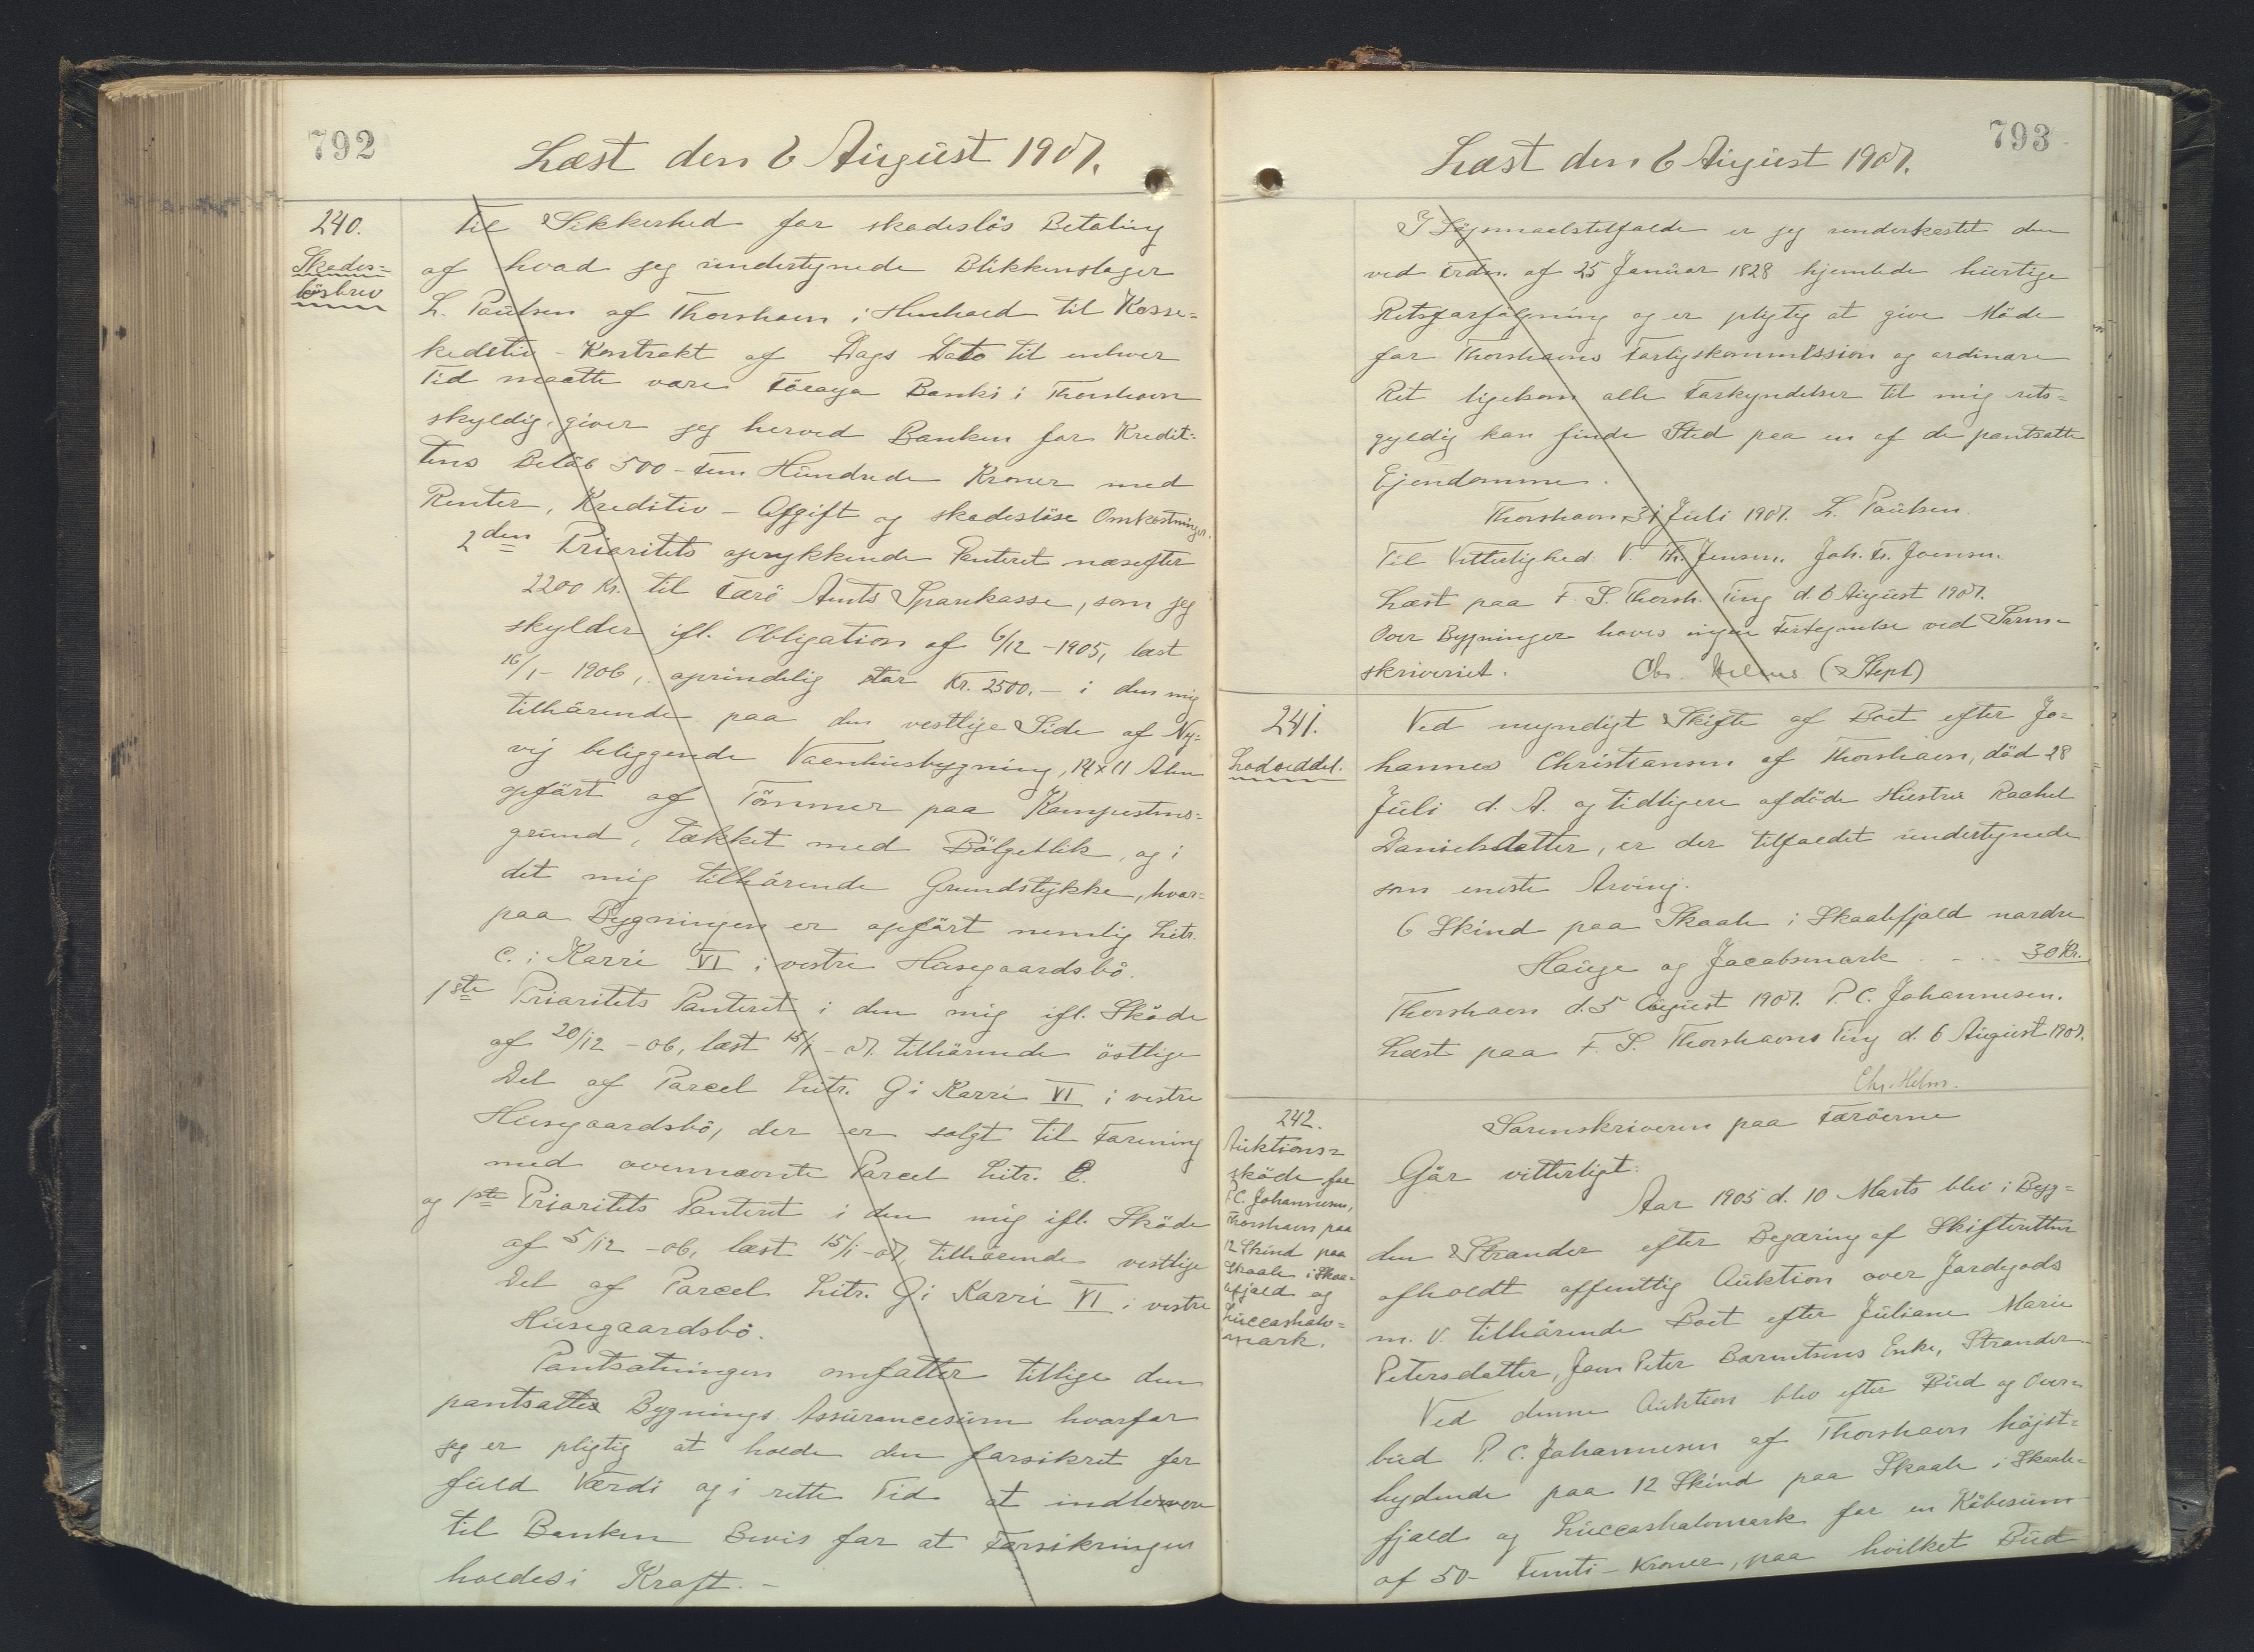 792
Læst den 6 August 1907.
240.
Skades=
løsbrev
Til Sikkerhed for skadesløs Betaling
af hvad jeg undertegnede Blikkenslager
L. Paulsen af Thorshavn i Henhold til Kasse=
kredetiv-Kontrakt af Dags Dato til enhver
Tid maatte være Føroya Banki i Thorshavn
skyldig, giver jeg herved Banken for Kredit-
tens Beløb 500 - fem Hundrede Kroner med
Renter, Kreditiv-Afgift og skadesløse Omkostninger.
2den Prioritets oprykkende Panteret næsefter
2200 Kr. til Færø Amts Sparekasse, som jeg
skylder ifl. Obligation af 6/12 - 1905, læst
16/1 - 1906, oprindelig stor Kr. 2500,- i den mig
tilhørende paa den vestlige Side af Ny=
vej beliggende Vaanhusbygning, 14 x 11 Alen
opført af Tømmer paa Kampestens=
grund, tækket med Bølgeblik, og i
det mig tilhørende Grundstykke, hvor=
paa Bygningen er opført nemlig Litr.
C. i Karré VI i vestre Husegaardsbø.
1ste Prioritets Panteret i den mig ifl. Skøde
af 20/12 - 06, læst 15/1 - 07. tilhørende østlige
Del af Parcel Litr. G i Karré VI i vestre
Husegaardsbø, der er solgt til Forening
med ovennævnte Parcel Litr. C.
og 1ste Prioritets Panteret i den mig ifl. Skøde
af 5/12 - 06, læst 15/1 - 07, tilhørende vestlige
Del af Parcel Litr. G i Karré VI i vestre
Husegaardsbø.
Pantsætningen omfatter tillige den
pantsatte Bygnings Assurancesum hvorfor
jeg er pligtig at holde den forsikret for
fuld Værdi og i rette Tid at indlevere
til Banken Bevis for at Forsikringen
holdes i Kraft. -
793
Læst den 6 August 1907.
I Søgsmaalstilfælde er jeg underkastet den
ved Frdn. af 25 Januar 1828 hjemlede hurtige
Retsforfølgning og er pligtig at give Møde
for Thorshavns Forligskommission og ordinære
Ret ligesom alle Forkyndelser til mig rets=
gyldig kan finde Sted paa en af de pantsatte
Ejendomme.
Thorshavn 31 Juli 1907. L. Paulsen.
Til Vitterlighed V. Th. Jensen. Joh. Fr. Joensen.
Læst paa F. S. Thorsh. Ting d. 6 August 1907.
Over Bygninger haves ingen Fortegnelse ved Soren-
skriveriet. Chr. Helms (Stept)
241.
Lodseddel.
Ved myndigt Skifte af Boet efter Jo-
hannes Christiansen af Thorshavn, død 28
Juli d. A. og tidligere afdøde Hustru Rachel
Danielsdatter, er der tilfaldet undertegnede
som eneste Arving.
6 Skind paa Skaale i Skaalefjald nordre
Hauge og Jacobsmark . - . . 30 Kr.
Thorshavn d. 5 August 1907. P. C. Johannesen.
Læst paa F. S. Thorshavns Ting d. 6 August 1907.
Chr. Helm.
242.
Auktions=
skøde for
P. C. Johannesen,
Thorshavn paa
12 Skind paa
Skaale i Skaa=
lefjald og
Luccashalv=
mark.
Sorenskriveren paa Færøerne
Gør vitterligt:
Aar 1905 d. 10 Marts blev i Byg=
den Strander efter Begæring af Skifteretten
afholdt offentlig Auktion over Jordegods
m. v. tilhørende Boet efter Juliane Marie
Petersdatter, Joen Peter Barentsens Enke, Strander
Ved denne Auktion blev efter Bud og Over=
bud P. C. Johannesen af Thorshavn højst=
bydende paa 12 Skind paa Skaale i Skaale=
fjald og Luccashalvmark for en Købesum
af 50 - Femti - Kroner, paa hvilket Bud